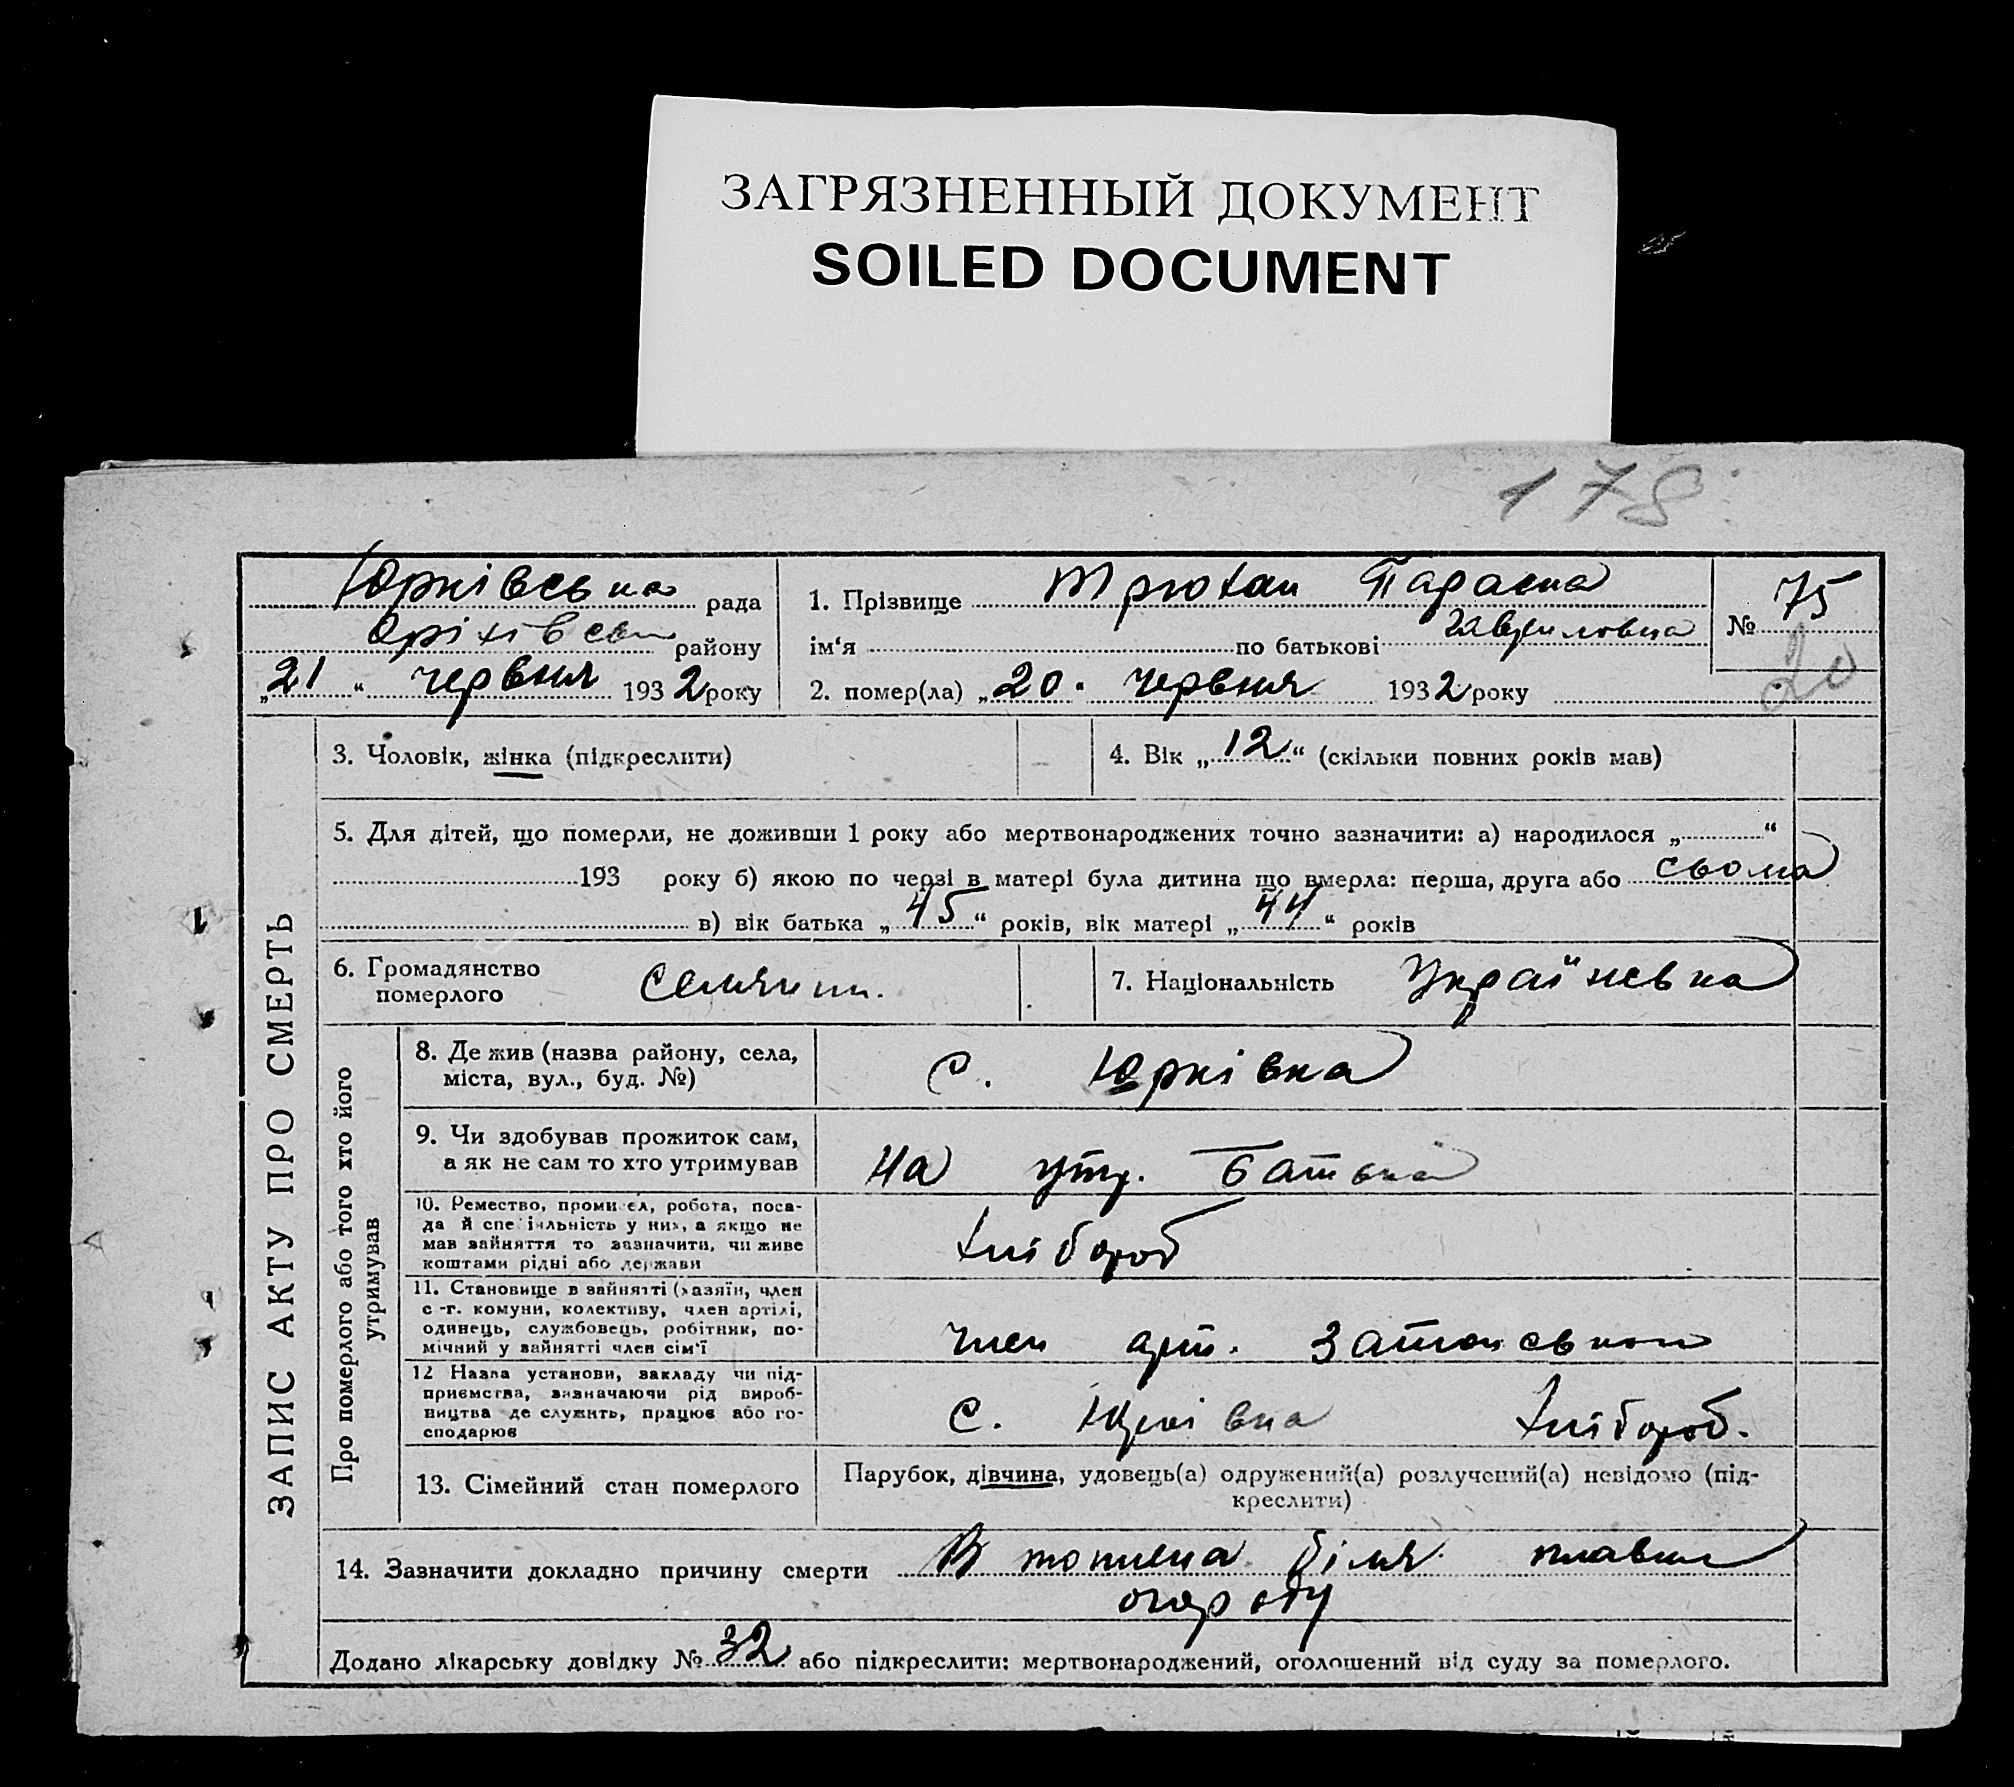 ЗАГРЯЗНЕННЫЙ ДОКУМЕНТ
SOILED DOCUMENT
178
Юрківська рада
Оріхівськ району
„21“ червня 1932 року
1. Прізвище Трюхан Параска
ім‘я по батькові Гавриловна
2. помер(ла) „20. червня 1932 року
№ 75
20
ЗАПИС АКТУ ПРО СМЕРТЬ
3. Чоловік, жінка (підкреслити)
4. Вік „12“ (скільки повних років мав)
5. Для дітей, що померли, не доживши 1 року або мертвонароджених точно зазначити: а) народилося „ “
193 року б) якою по черзі в матері була дитина що вмерла: перша, друга або сьома
в) вік батька „45“ років, вік матері „44“ років
6. Громадянство
померлого
Селянин.
7. Національність Українська
Про померлого або того хто його
утримував
8. Де жив (назва району, села,
міста, вул., буд. №)
с. Юрківка
9. Чи здобував прожиток сам,
а як не сам то хто утримував
На утр. батька
10. Ремество, промисел, робота, поса-
да й спеціяльність у них, а якщо не
мав зайняття то зазначити, чи живе
коштами рідні або держави
хлібороб
11. Становище в зайнятті (хазяїн, член
с.-г. комуни, колективу, член артілі,
одинець, службовець, робітник, по-
мічний у зайнятті член сім‘ї
член арт.
12 Назва установи, закладу чи під-
приємства, зазначаючи рід вироб-
ництва де служить, працює або го-
сподарює
с. Юрківка хлібороб.
13. Сімейний стан померлого
Парубок, дівчина, удовець(а) одружений(а) розлучений(а) невідомо (під-
креслити)
14. Зазначити докладно причину смерти Втоплена біля плавні
огороду
Додано лікарську довідку № 32 або підкреслити: мертвонароджений, оголошений від суду за померлого.